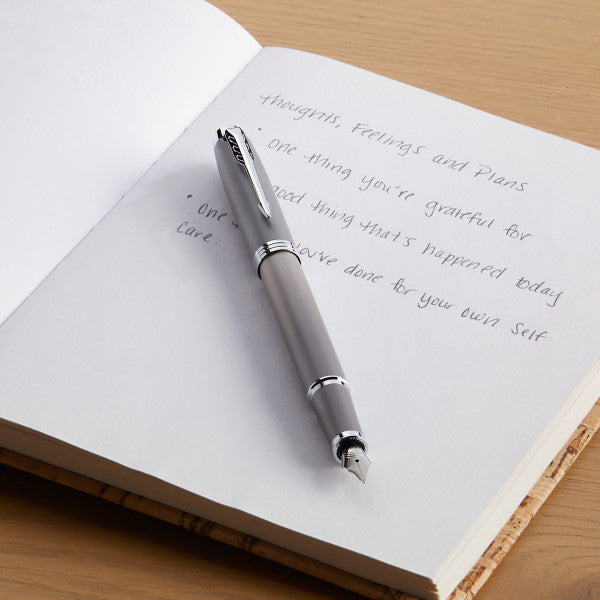 thoughts, Feelings and Plans
• one thing you're grateful for
good thing that's happened today
• one you've done for your own self
care.